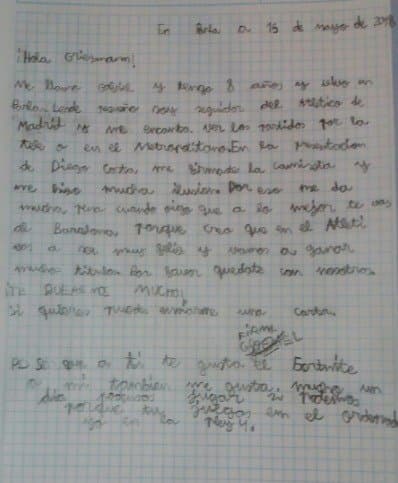 En Parla a 15 de mayo de 2018
¡Hola Griezmann!
Me llamo y tengo 8 años y vivo en
Parla. Desde pequeño soy seguidor del Atlético de
Madrid y me encanta ver los partidos por la
tele o en el Metropolitano. En la presentación
de Diego Costa, me firmaste la camiseta y
me hizo mucha ilusión. Por eso me da
mucha pena cuando oigo que a lo mejor te vas
al Barcelona, porque creo que en el Atleti
vas a ser muy feliz y vamos a ganar
muchos titulos. Por favor quedate con nosotros.
¡TE QUEREMOS MUCHO!
Si quieres puedes enviarme una carta.
FIRMA
PD Sé que a ti te gusta el Fortnite
a mi tambien me gusta mucho un
dia podemos jugar si podemos
porque tu juegas en el ordenador
yo en la Play 4.